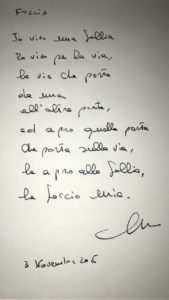 Follia
Io vivo una follia
Ea vivo per la via,
la via che porta
da una
all'altra porta,
ed apro quella porta
che porta sulla via,
la apro alla follia,
la faccio mia.
3 Novembre 2016